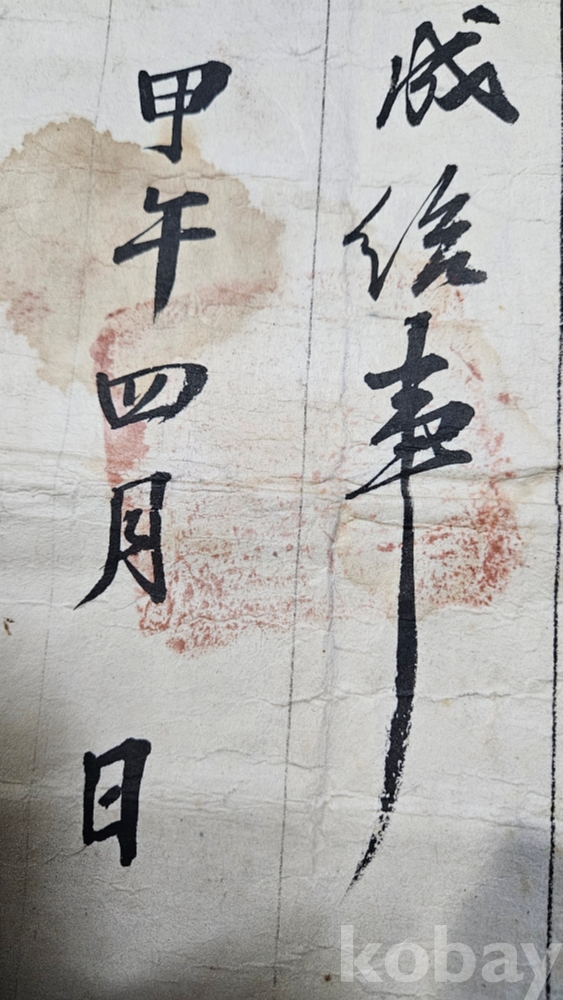 成給事
甲午四月 日
kobay